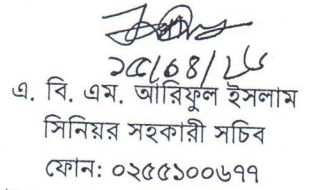 ১৫/০৪/২৬
এ. বি. এম. আরিফুল ইসলাম
সিনিয়র সহকারী সচিব
ফোন: ০২৫৫১০০৬৭৭